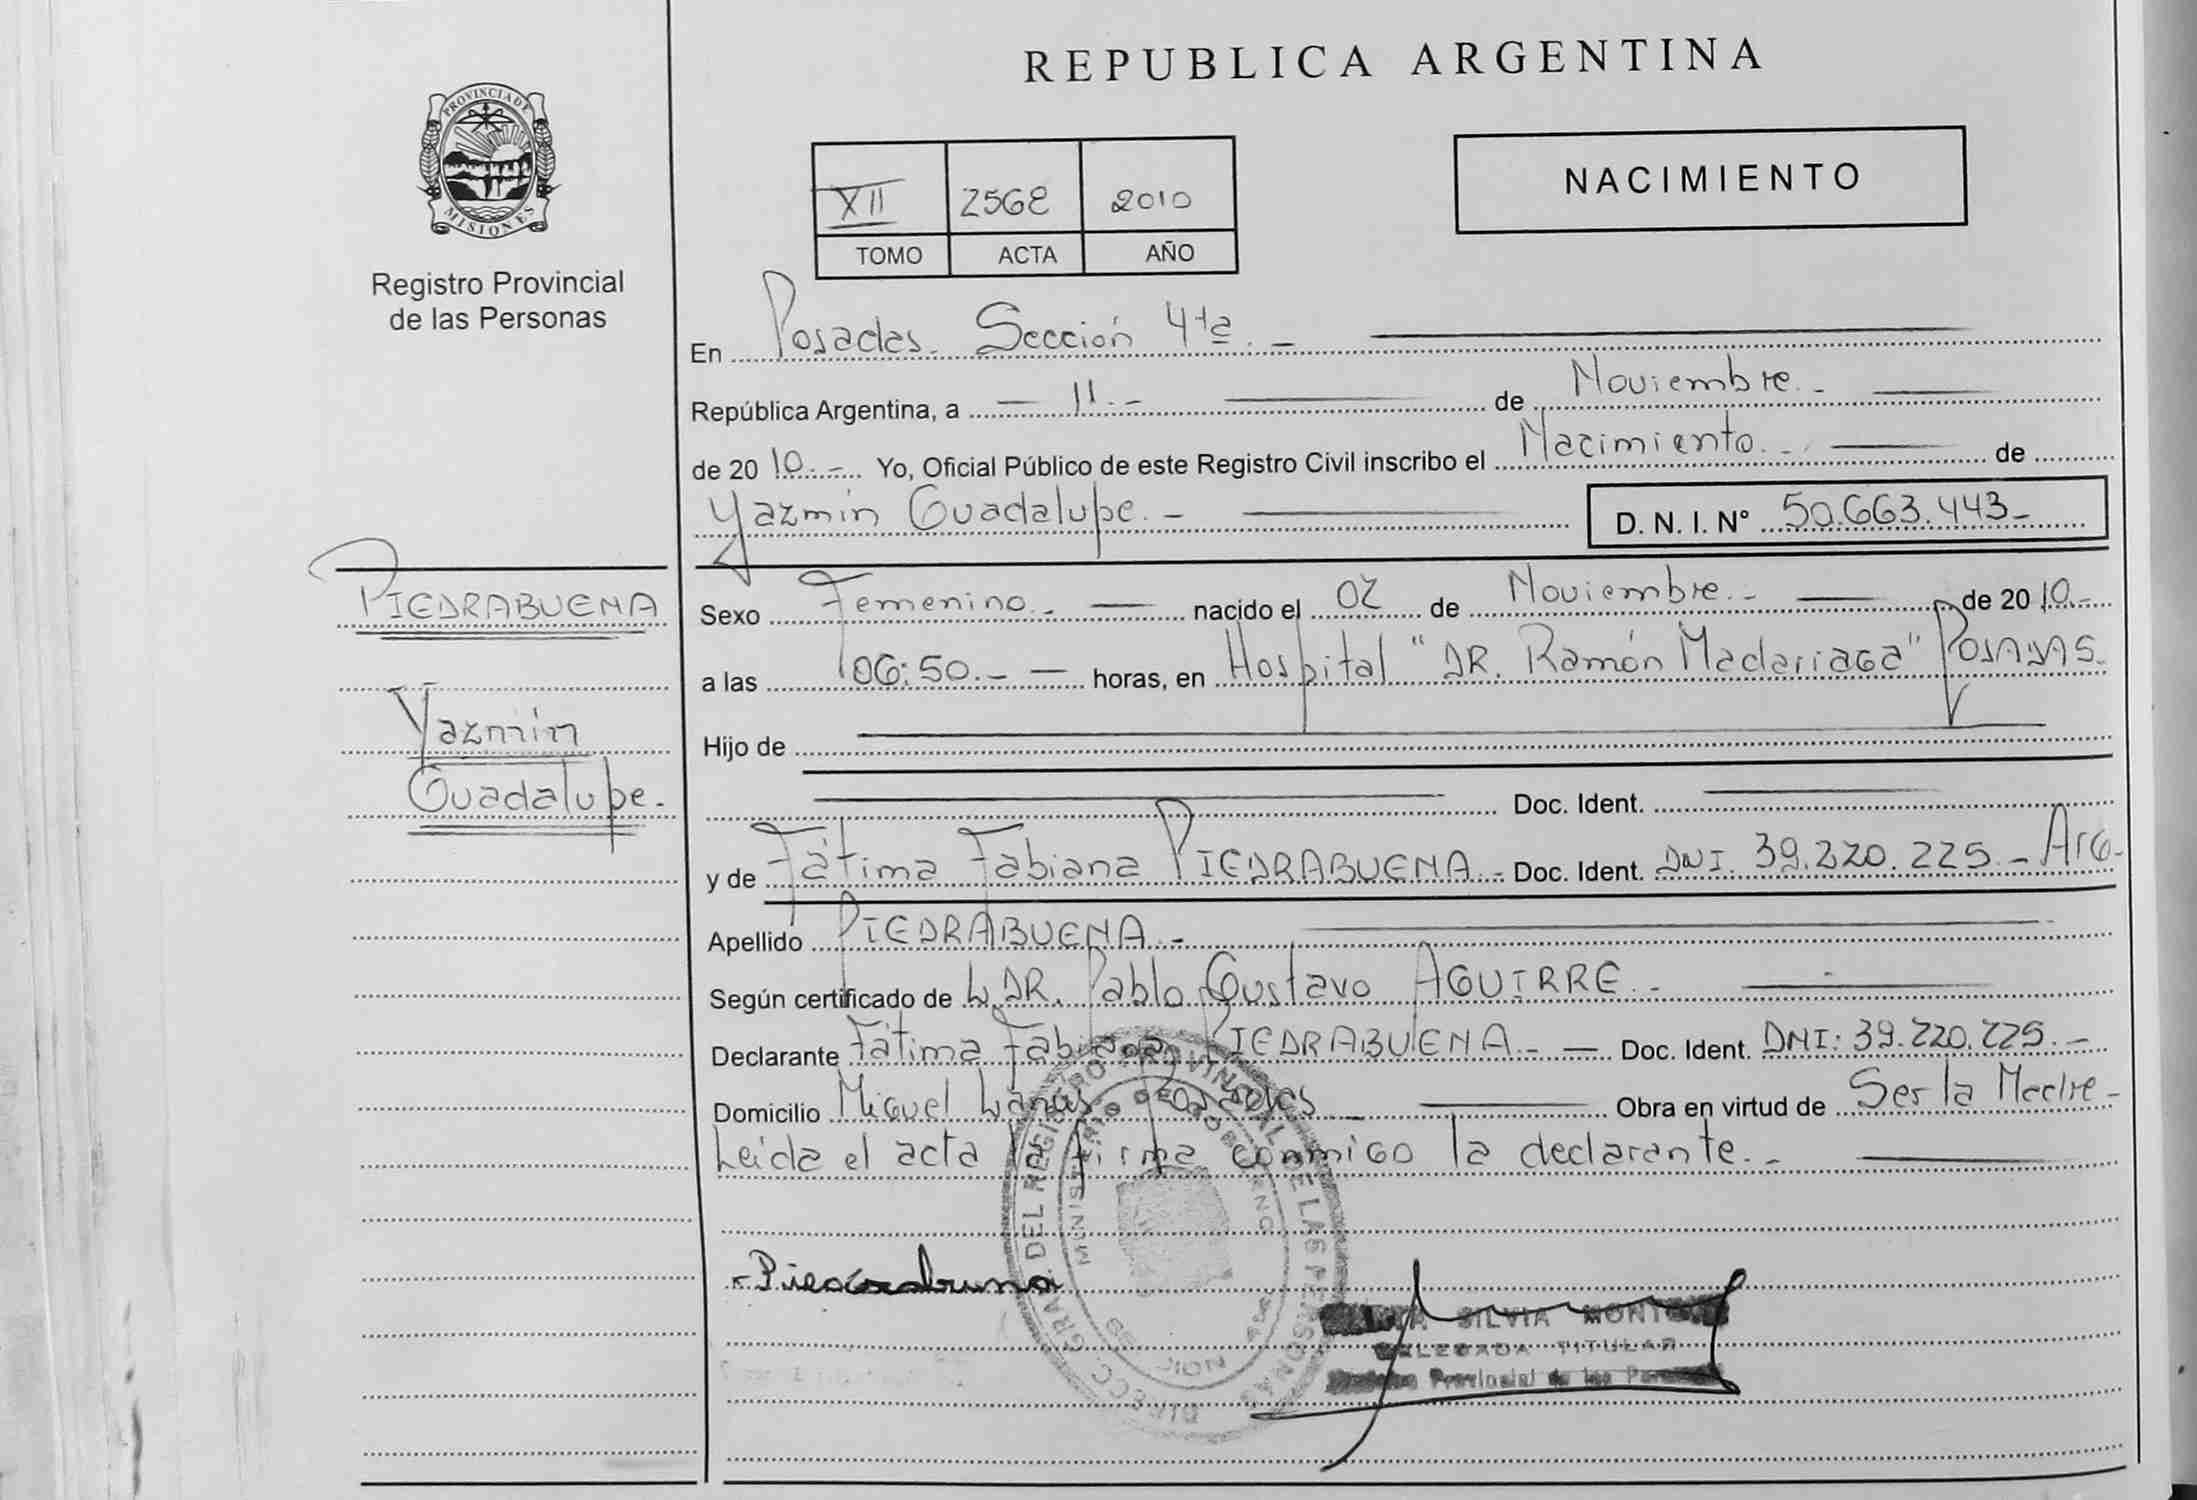 PROVINCIA DE
MISIONES
Registro Provincial
de las Personas
REPUBLICA ARGENTINA
XII 2568 2010
TOMO ACTA AÑO
NACIMIENTO
En Posadas. Sección 4ta.-
República Argentina, a - 11.- de Noviembre.-
de 20 10.- Yo, Oficial Público de este Registro Civil inscribo el Nacimiento.- de
Yazmín Guadalupe.- D. N. I. N° 50.663.443-
PIEDRABUENA
Yazmín
Guadalupe.
Sexo Femenino.- nacido el 02 de Noviembre.- de 20 10.-
a las 06:50.- horas, en Hospital "DR. Ramón Madariaga" POSADAS.
Hijo de
Doc. Ident.
y de Fátima Fabiana PIEDRABUENA.- Doc. Ident. DNI. 39.220.225.- Arg.
Apellido PIEDRABUENA.-
Según certificado de DR. Pablo Gustavo AGUIRRE.-
Declarante Fátima Fabiana PIEDRABUENA.- Doc. Ident. DNI: 39.220.225.-
Domicilio Miguel Lanús Posadas Obra en virtud de Ser la Madre-
Leída el acta la firma conmigo la declarante.-
DIRECC. GRAL. DEL REGISTRO PROVINCIAL DE LAS PERSONAS
MINISTERIO DE GOBIERNO
Piedrabuena
SILVIA
DELEGADA TITULAR
Provincial de las